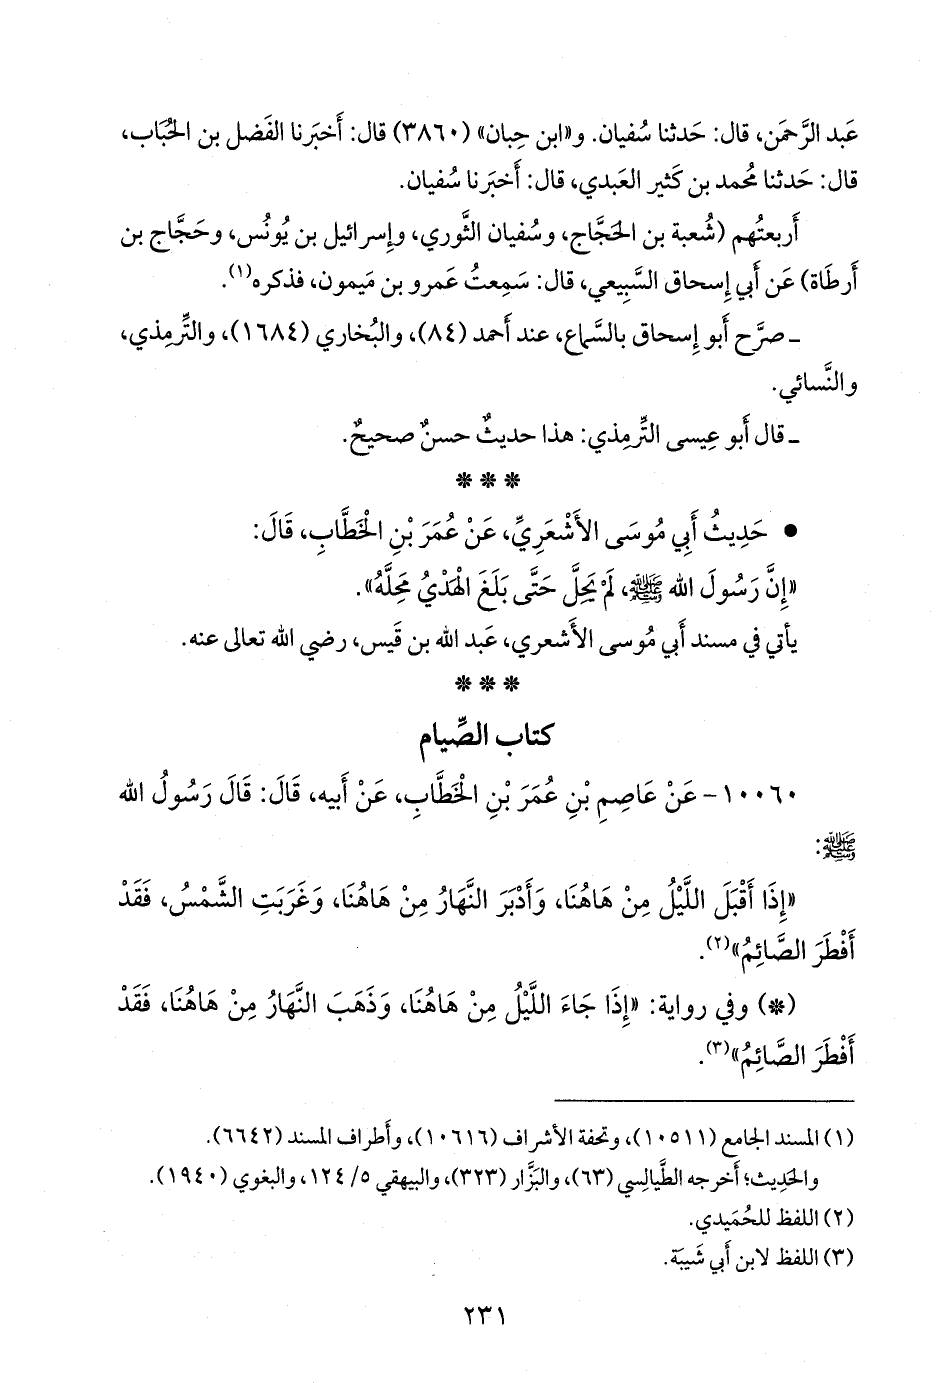 عَبد الرَّحمَن، قال: حَدثنا سُفيان. و«ابن حِبان» (٣٨٦٠) قال: أَخبَرنا الفَضل بن الحُبَاب،
قال: حَدثنا مُحمد بن كَثير العَبدي، قال: أَخبَرنا سُفيان.
أَربعتُهم (شُعبة بن الحَجَّاج، وسُفيان الثَّوري، وإِسرائيل بن يُونُس، وحَجَّاج بن
أَرطَاة) عَن أَبي إِسحاق السَّبِيعي، قال: سَمِعتُ عَمرو بن مَيمون، فذكره(١).
ـ صرَّح أَبو إِسحاق بالسَّماع، عند أَحمد (٨٤)، والبُخاري (١٦٨٤)، والتِّرمِذي،
والنَّسائي.
ـ قال أَبو عِيسى التِّرمِذي: هذا حديثٌ حسنٌ صحيحٌ.
* * *
• حَدِيثُ أَبِي مُوسَى الأَشْعَرِيِّ، عَنْ عُمَرَ بْنِ الْخَطَّابِ، قَالَ:
«إِنَّ رَسُولَ الله ﷺ، لَمْ يَحِلَّ حَتَّى بَلَغَ الْهَدْيُ مَحِلَّهُ».
يأتي في مسند أَبي مُوسى الأَشعري، عَبد الله بن قَيس، رضي الله تعالى عنه.
* * *
كتاب الصِّيام
١٠٠٦٠- عَنْ عَاصِمِ بْنِ عُمَرَ بْنِ الْخَطَّابِ، عَنْ أَبيه، قَالَ: قَالَ رَسُولُ الله
ﷺ:
«إِذَا أَقْبَلَ اللَّيْلُ مِنْ هَاهُنَا، وَأَدْبَرَ النَّهَارُ مِنْ هَاهُنَا، وَغَرَبَتِ الشَّمْسُ، فَقَدْ
أَفْطَرَ الصَّائِمُ»(٢).
(*) وفي رواية: «إِذَا جَاءَ اللَّيْلُ مِنْ هَاهُنَا، وَذَهَبَ النَّهَارُ مِنْ هَاهُنَا، فَقَدْ
أَفْطَرَ الصَّائِمُ»(٣).
(١) المسند الجامع (١٠٥١١)، وتحفة الأشراف (١٠٦١٦)، وأَطراف المسند (٦٦٤٢).
والحَدِيث؛ أَخرجه الطَّيالِسي (٦٣)، والبَزَّار (٣٢٣)، والبيهقي ٥/ ١٢٤، والبغوي (١٩٤٠).
(٢) اللفظ للحُمَيدي.
(٣) اللفظ لابن أَبي شَيبَة.
٢٣١